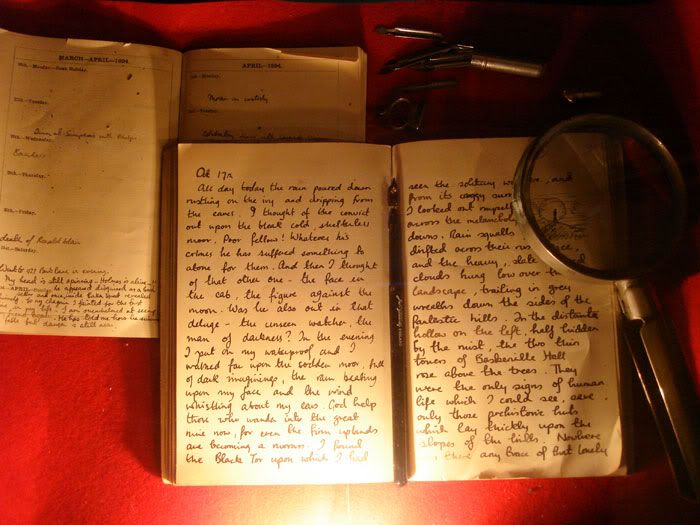 MARCH-APRIL-1894.
26th.-Monday.-Bank Holiday.
27th.-Tuesday.
Dinner at Simpson's with
28th.-Wednesday.
29th.-Thursday.
30th.-Friday.
death of Ronald Adair
Went to 427 Park Lane in evening.
My head is still spinning - Holmes is alive
he appeared disguised as a
and once inside
I fainted for the first
life. I am overwhelmed at seeing
friend again. He has told me how he
but danger is still near.
APRIL-1894.
Monday.
Moran in custody
Tuesday.
Oct 17th
All day today the rain poured down
rustling on the ivy and dripping from
the eaves. I thought of the convict
out upon the bleak cold shelterless
moor. Poor fellow! Whatever his
crimes he has suffered something to
atone for them. And then I thought
of that other one - the face in
the cab, the figure against the
moon. Was he also out in that
deluge - the unseen watcher, the
man of darkness? In the evening
I put on my waterproof and I
walked far upon the sodden moor, full
of dark imaginings, the rain beating
upon my face and the wind
whistling about my ears. God help
those who wander into the great
mire now, for even the firm uplands
are becoming a morass. I found
the Black Tor upon which I had
seen the solitary watcher, and
from its craggy summit
I looked out myself
across the melancholy
downs. Rain squalls
drifted across their russet face,
and the heavy, slate
clouds hung low over the
landscape, trailing in grey
wreaths down the sides of the
fantastic hills. In the distant
hollow on the left, half hidden
by the mist, the two thin
towers of Baskerville Hall
rose above the trees. They
were the only signs of human
life which I could see, save
only those prehistoric huts
which lay thickly upon the
slopes of the hills. Nowhere
there any trace of that lonely